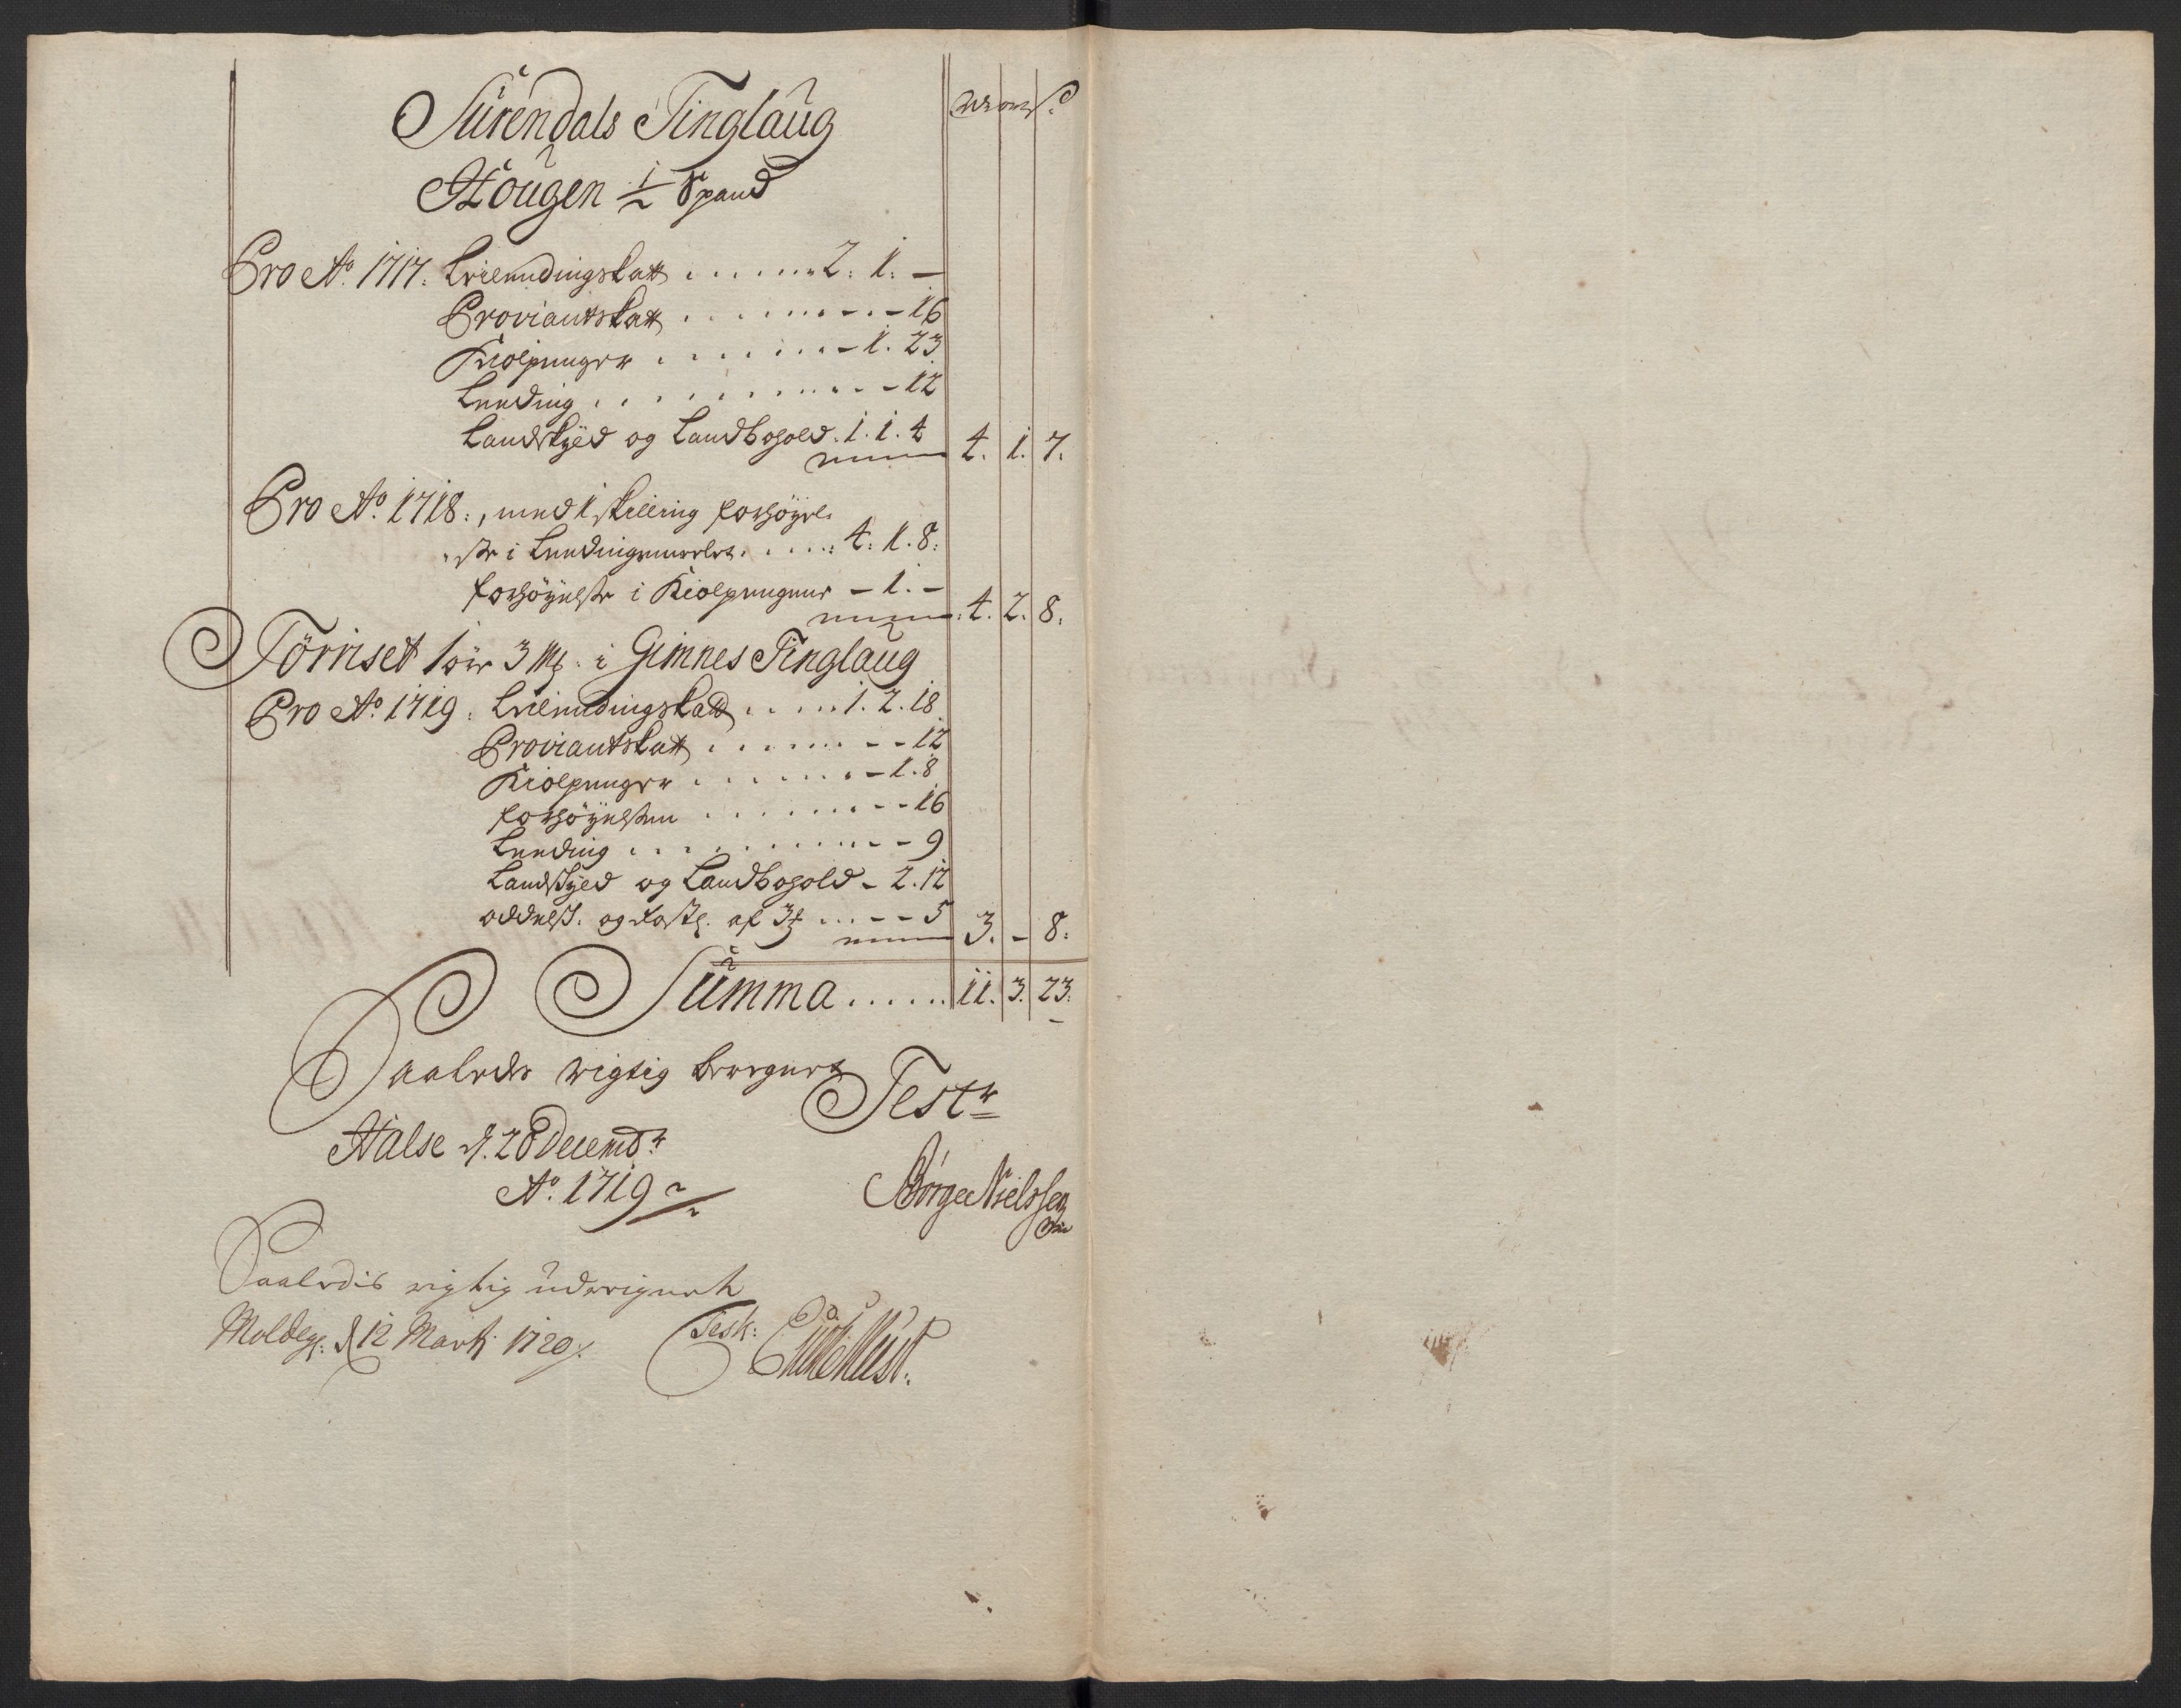 Rdr ort s
Surendals Tinglaug
Hougen 1/2 Spand
Pro Ao. 1717: Leilendingskatt ...... 2. 1. –
Proviantskatt ........ – – 16
Kiolpenger ....... – 1. 23
Leeding ........... – – 12
Landskyld og Landbohold. 1. 1. 4 4. 1. 7.
Pro Ao. 1718:, med 1 skilling forhöyel-
se i Leedingen ..... 4. 1. 8:
forhöyelse i Kiolpengene – 1. – 4. 2. 8.
Törriset 1 öre 3 Mk: i Gimnes Tinglaug
Pro Ao. 1719: Leilendingskatt ..... 1. 2. 18
Proviantskatt ........ – – 12
Kiolpenger ....... – 1. 8
forhöyelsen ........ – – 16
Leeding .......... – – 9
Landskyld og Landbohold – 2. 12
og af 3 ... – – 5 3. – 8:
Summa ...... 11. 3. 23:
Saaledes rigtig beregnet
Testr
Halse d. 28 Decembr
Ao. 1719
Börge Nielssen
Saaledis rigtig uderignet
Moldeg: d 12 Marti 1720. Test: